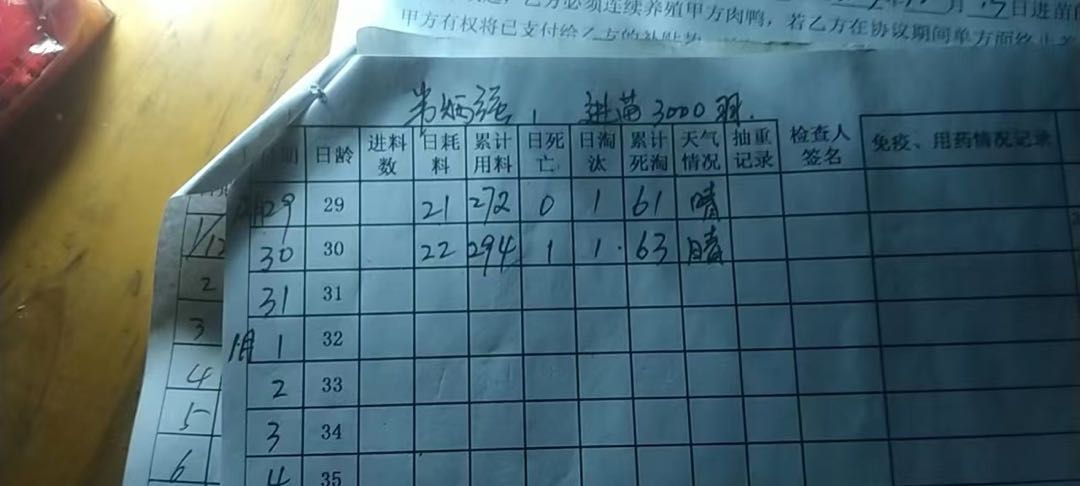 乙方必须连续养殖甲方肉鸭，若乙方在协议期间单方面终止养
月 17日进苗
甲方有权将已支付给乙方的补贴款
进苗3000羽.
日期 日龄 进料数 日耗料 累计用料 日死亡 日淘汰 累计死淘 天气情况 抽重记录 检查人签名 免疫、用药情况记录
29 29 21 272 0 1 61 晴
30 30 22 294 1 1. 63 晴
31 31
1月 1 32
2 33
3 34
4 35
1/12
2
3
4
5
6